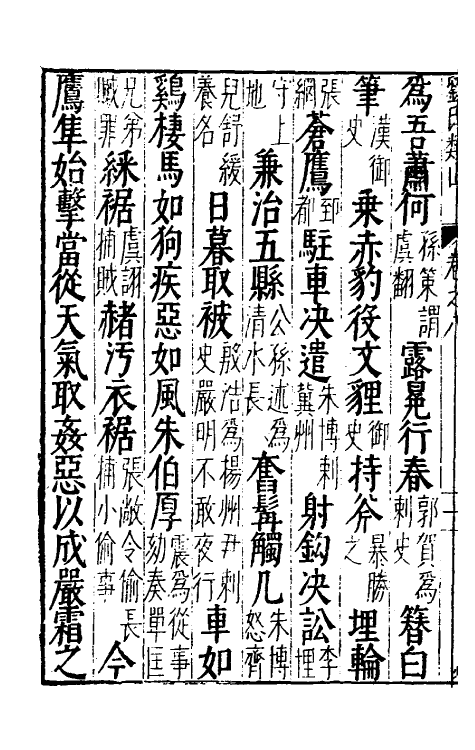 劉氏類山 卷之八
為吾蕭何孫策謂虞翻露冕行春郭賀為刺史簪白
筆漢御史乘赤豹役文貍御史持斧暴勝之埋輪
張綱蒼鷹郅都駐車决遣朱博刺冀州射鈎决訟李悝
守上地兼治五縣公孫述為清水長奮髯觸几朱博怒齊
兒舒緩養名日暮取被殷浩為楊州尹刺史嚴明不敢夜行車如
鷄棲馬如狗疾惡如風朱伯厚震為從事劾奏單匡
兄弟贓罪綵裾虞詡捕賊赭汚衣裾張敞令偷長捕小偷事今
鷹隼始擊當從天氣取姦惡以成嚴霜之